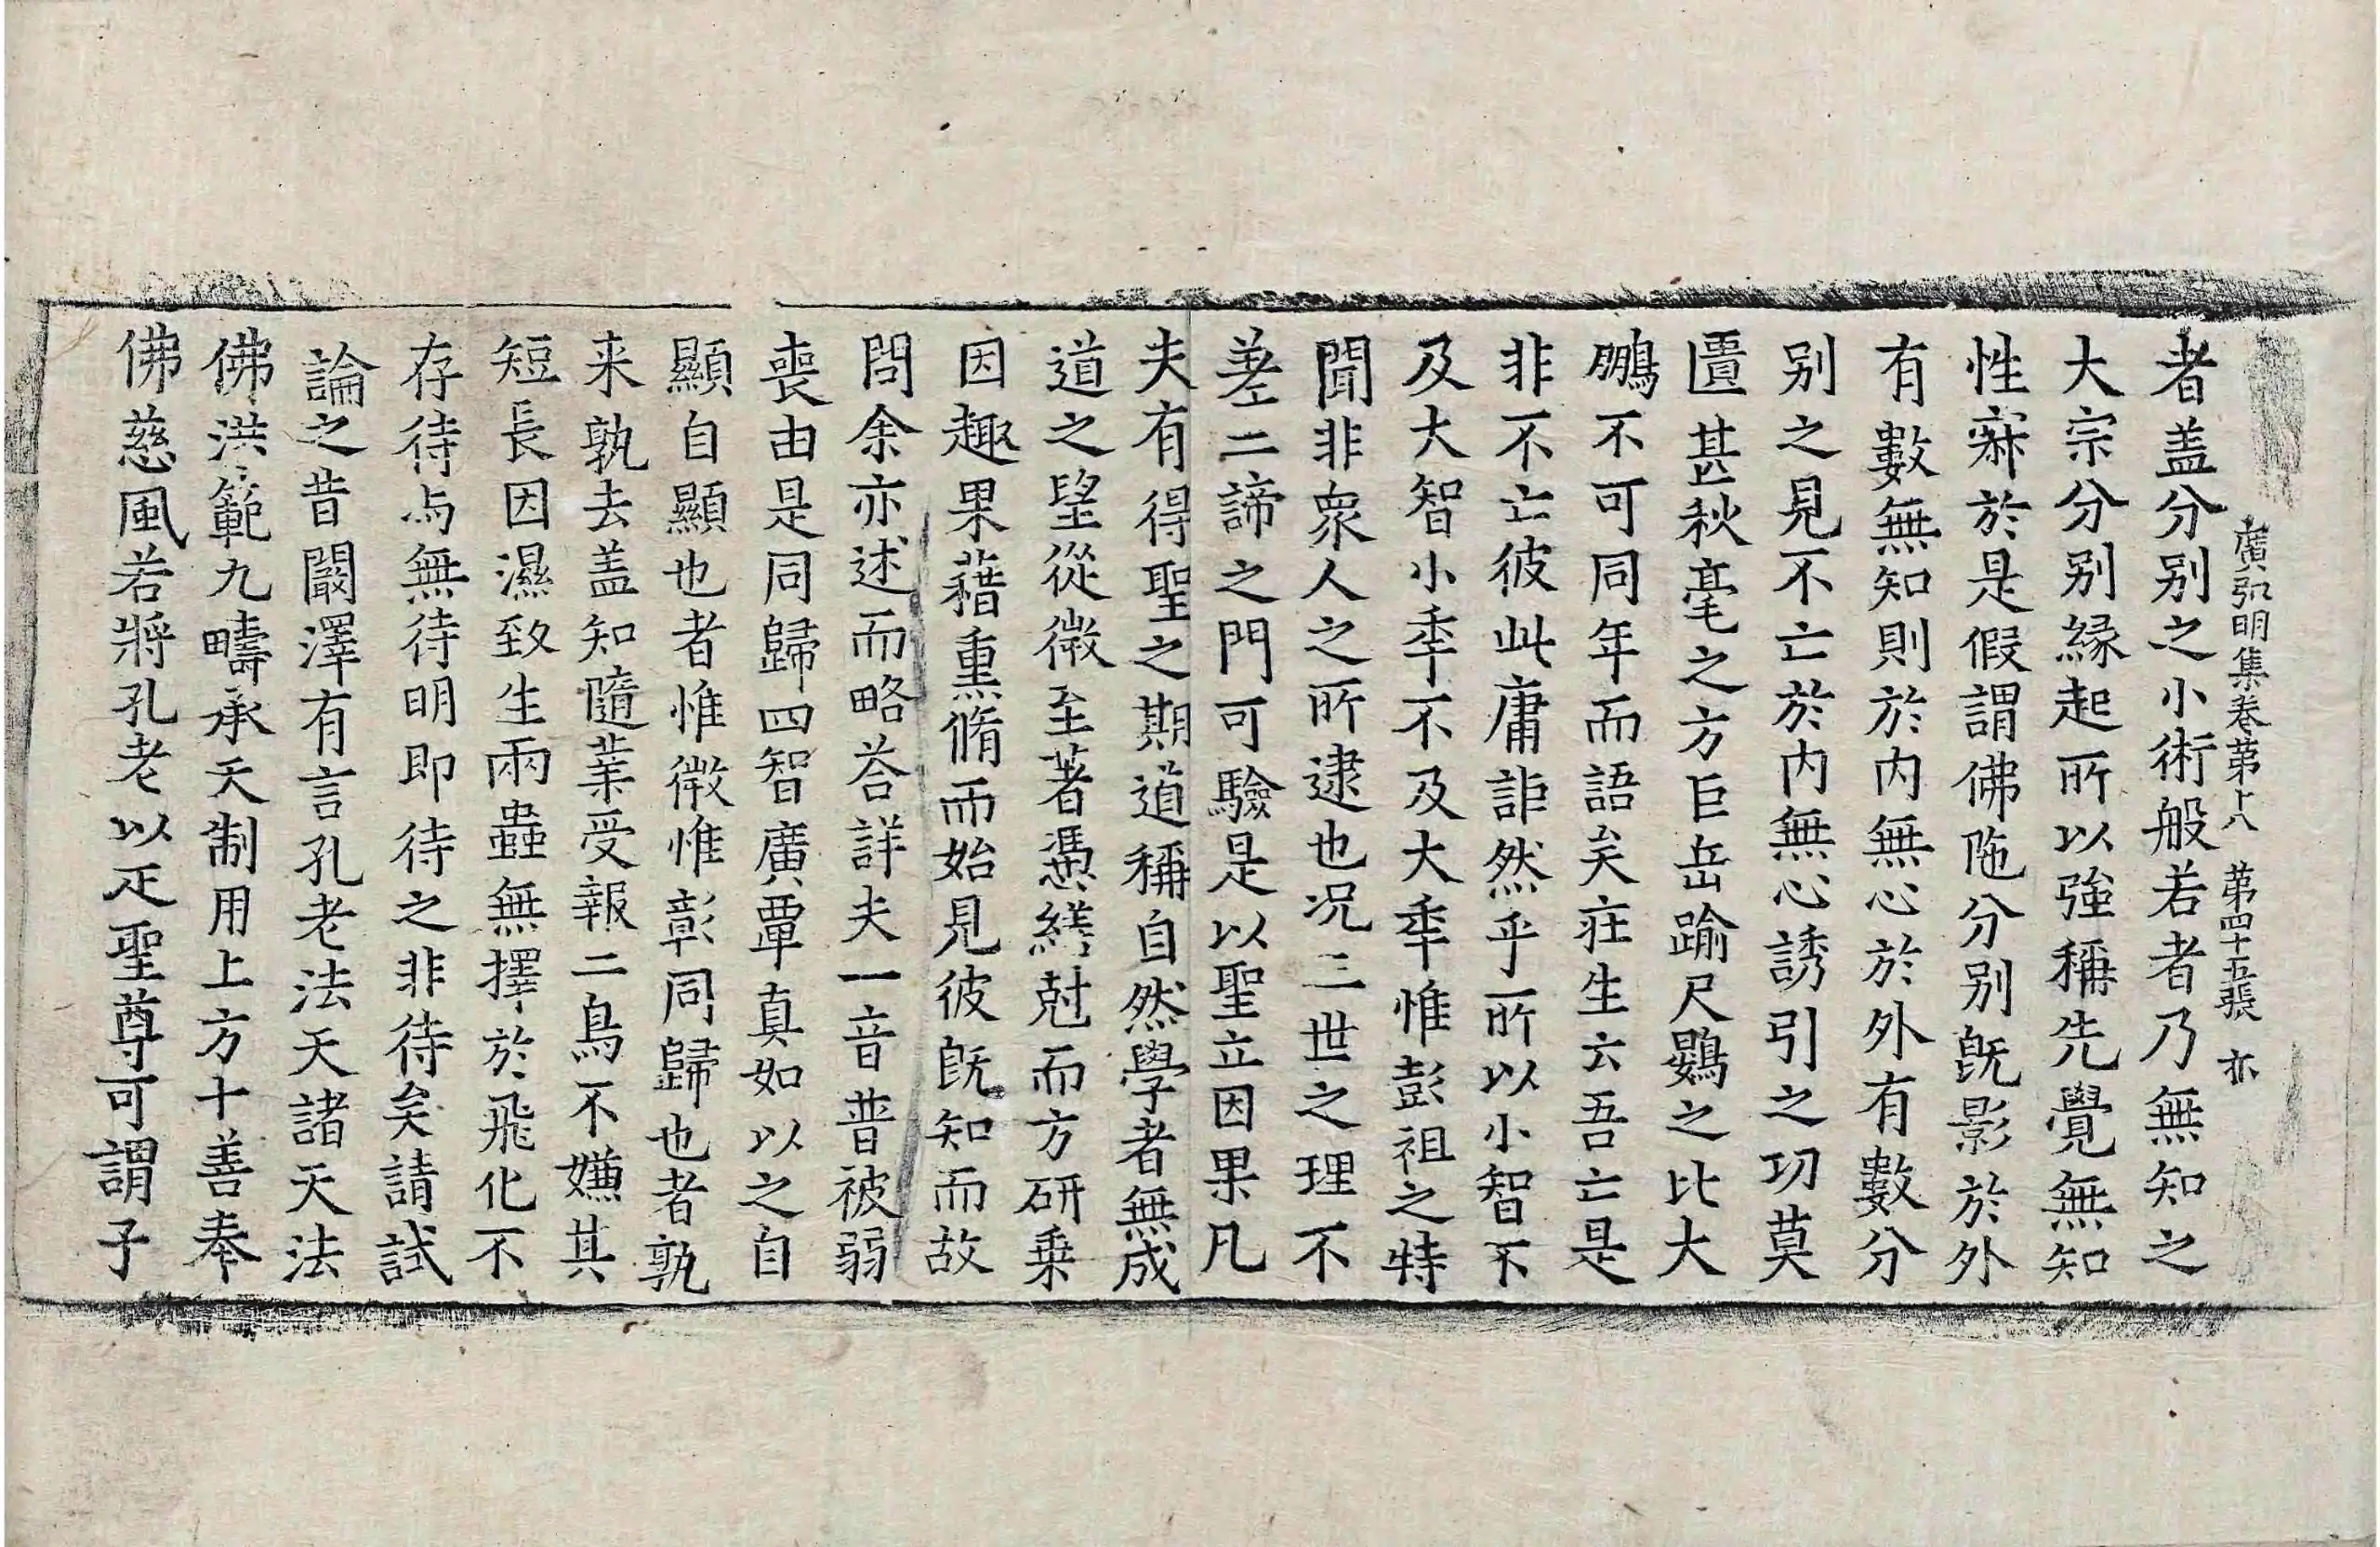 廣弘明集卷第十八 第四十五張 亦
者盖分别之小術般若者乃無知之
大宗分别緣起所以強稱先覺無知
性寂於是假謂佛陁分别旣影於外
有數無知則於内無心於外有數分
别之見不亡於内無心誘引之功莫
匱甚秋毫之方巨岳踰尺鷃之比大
鵬不可同年而語矣莊生云吾亡是
非不亡彼此庸詎然乎所以小智不
及大智小秊不及大秊惟彭祖之特
聞非衆人之所逮也况三世之理不
差二諦之門可驗是以聖立因果凡
夫有得聖之期道稱自然學者無成
道之望從微至著憑繕尅而方研乗
因趣果藉熏脩而始見彼旣知而故
問余亦述而略荅詳夫一音普被弱
喪由是同歸四智廣覃真如以之自
顯自顯也者惟微惟彰同歸也者孰
来孰去盖知隨業受報二鳥不嫌其
短長因濕致生兩蟲無擇於飛化不
存待与無待明即待之非待矣請試
論之昔闞澤有言孔老法天諸天法
佛洪範九疇承天制用上方十善奉
佛慈風若將孔老以疋聖尊可謂子